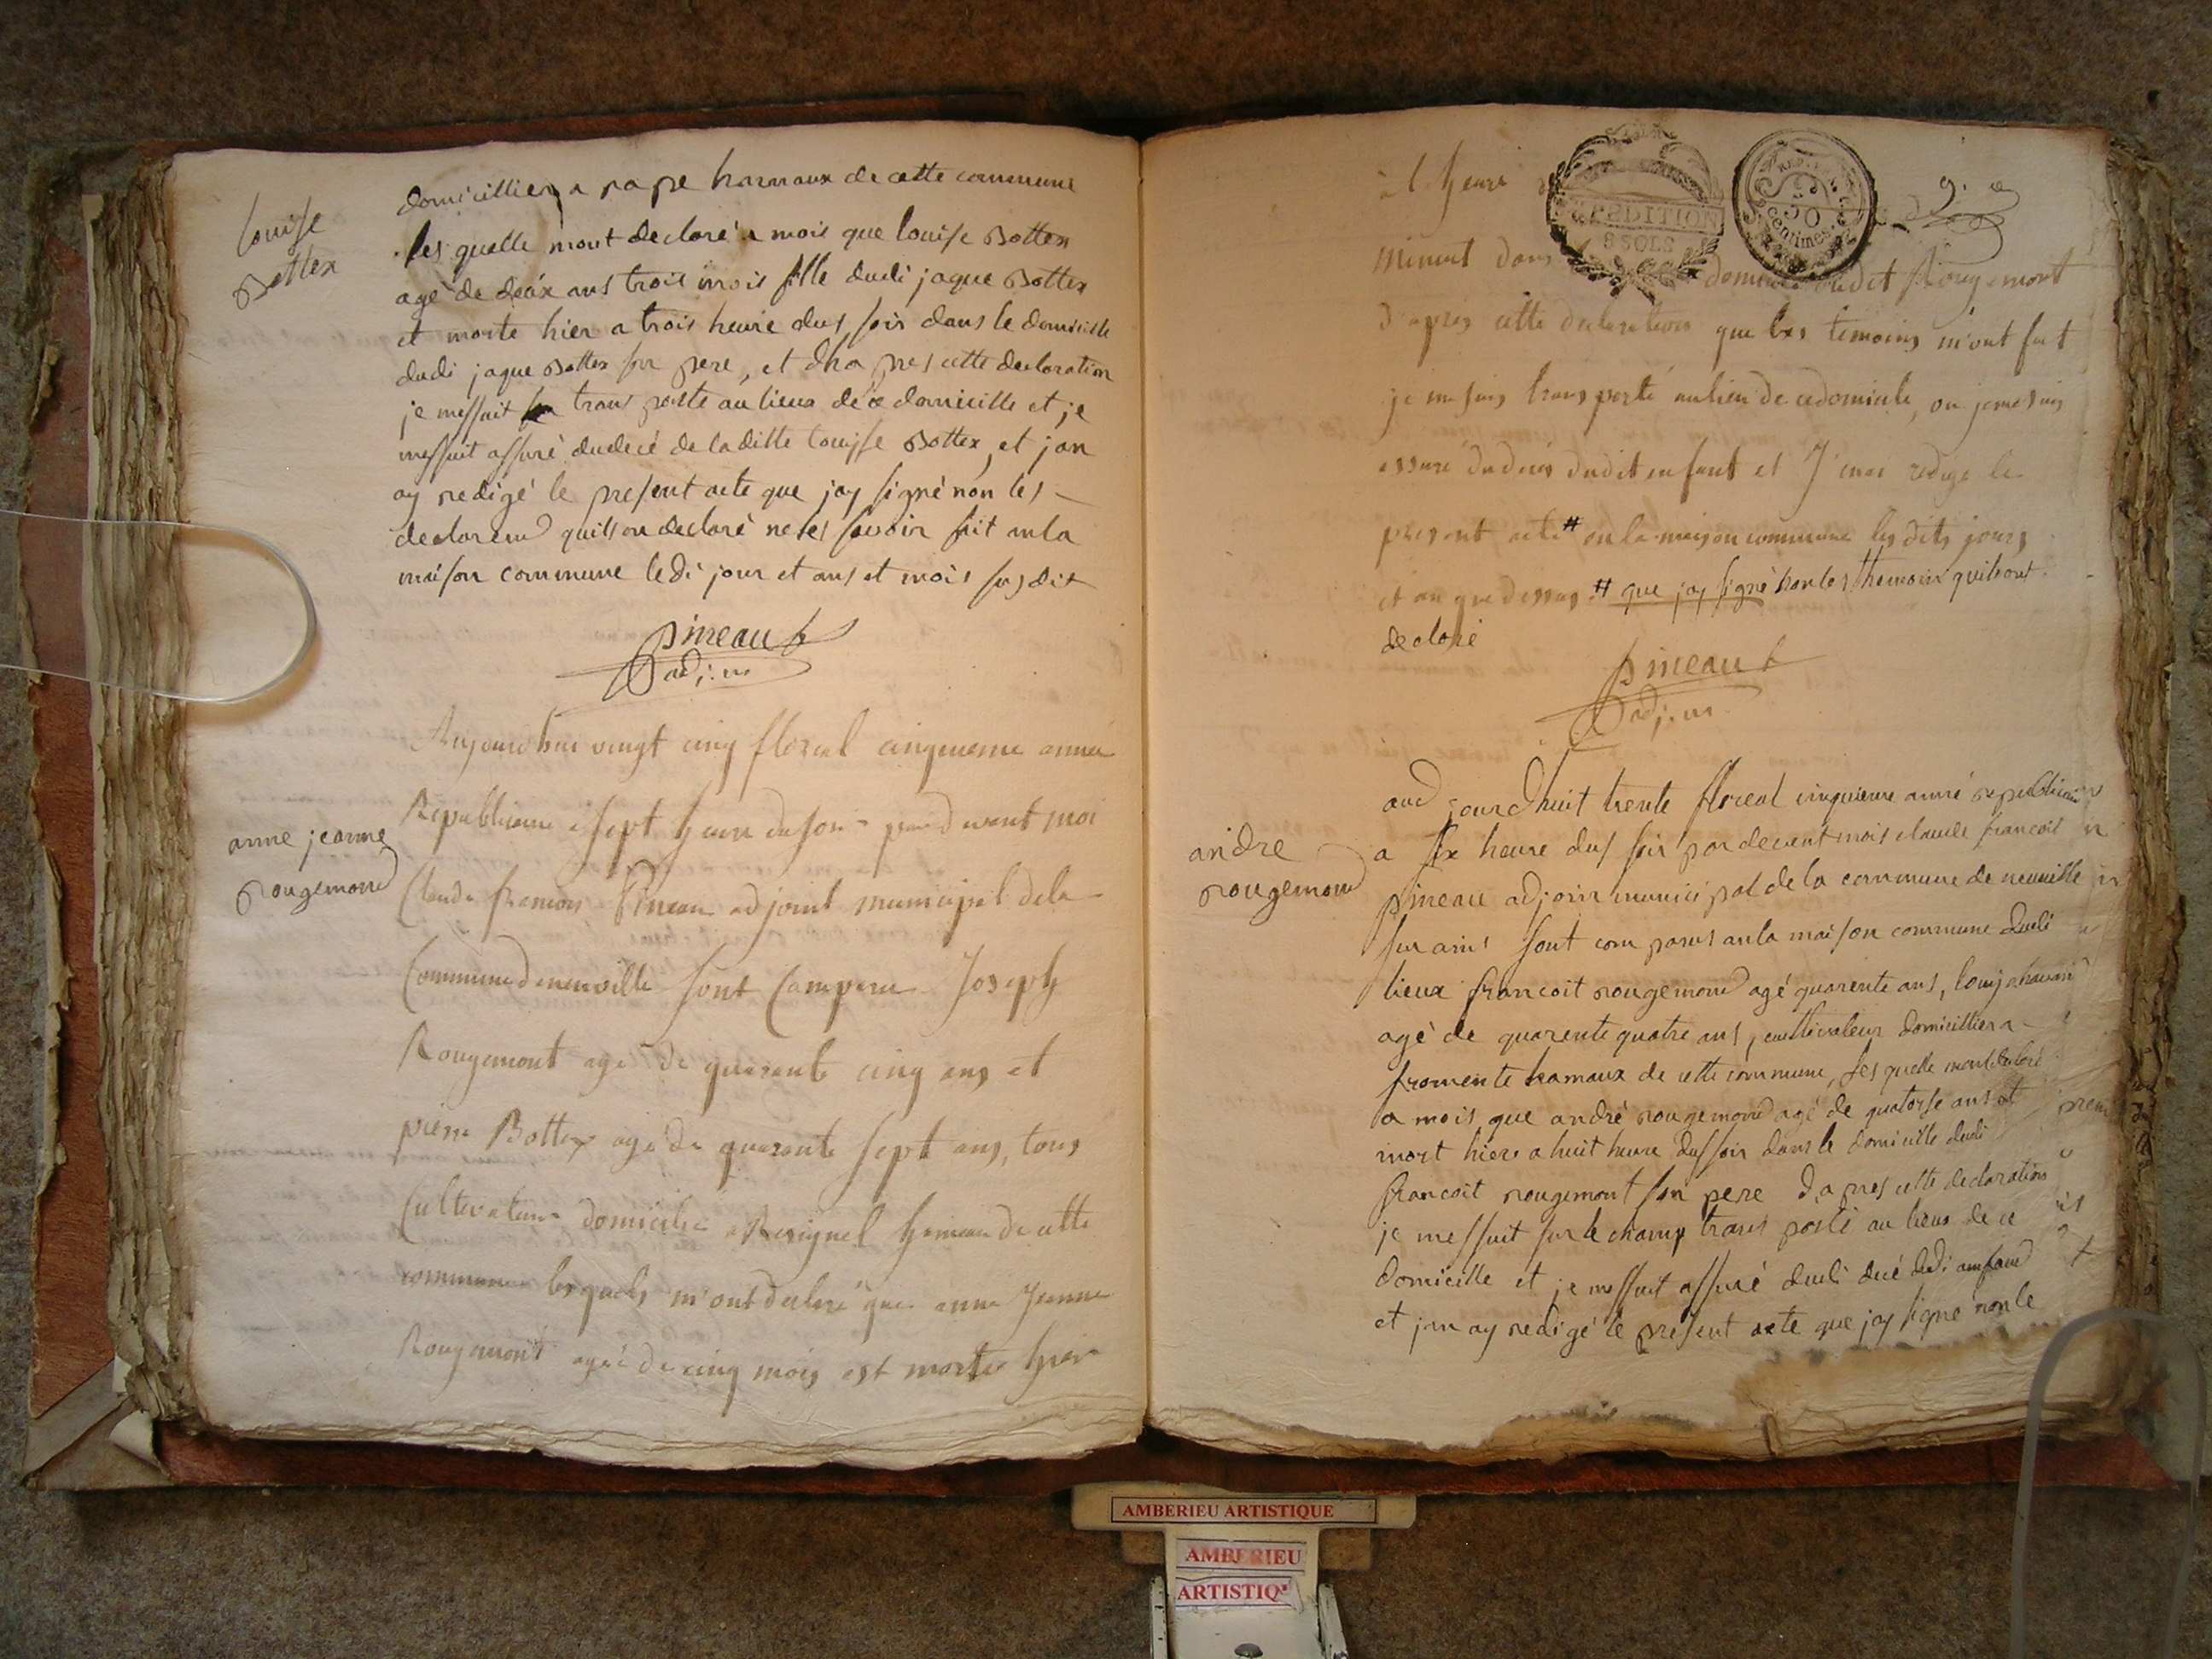 domicillier a rape hammaux de cette commune
Louisse
Bottex
les quelle mont declaré a mois que louise Bottex
agé de deux ans trois mois fille dudi jaque Bottex
et morte hier a trois heure dus soir dans le domicille
dudi jaque Bottex son pere, et dha pres cette declaration
je messuit trans porté au lieux de ce domicille et je
messuit assuré dudecé de laditte Louisse Bottex, et jan
ay redigé le present acte que jay signé non les
declarend quilson declaré ne les savoir fait anla
maison commune ledi jour et ans et mois susdit
pineau
adj.in
Aujourdhui vingt cinq floreal cinquieme année
Republicaine a sept heure du soir pardevant moi
anne jeanne
rougemond
Claude francois Pineau adjoint municipal dela
Commune deneuville sont comparu Joseph
Rougemont agé de quarante cinq ans et
pierre Bottex agé de quarante sept ans, tous
Cultivateurs domicilié a Resignel hameau de cette
commune lesquels m'ont déclaré que anne Jeanne
Rougemont agée de cinq mois est morte hier
à l'heure
EXPEDITION
8 SOLS
50
centimes
Minuit dans domicile dudit Rougemont
d'après cette declaration que les temoins m'ont fait
je me suis transporté aulieu de cedomicile, ou jemesuis
assuré dudecès dudit enfant et J'enai redigé le
present acte # en la maison commune les dits jours
et an que dessus # que jay signé non les themoin quilsont
declaré
pineau
adj.in
aud jourdhuit trente floreal cinquieme anné republicain
andre
rougemond
a six heure dus soir par devent mois claude francois
pineau adjoin municipal de la commune de neuville
sur ains sont com parus anla maison commune dudi
lieux francoit rougemond agé quarente ans,
agé de quarente quatre ans, cultivateur domicillier a
fromente hamaux de cette commune, les quelle montdeclaré
a mois que andré rougemond agé de quatorse ans et
mort hiere a huit heure dussoir dans le domicille dudi
francoit rougemont son pere d,a pres cette declaration
je messuit sur le champ trans porté au lieux de ce
domicille et je messuit assuré dudi decé dudi anfand
et jan ay redigé le present acte que jay signé non le
AMBERIEU ARTISTIQUE
AMBERIEU
ARTISTIQ